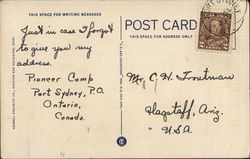 THIS SPACE FOR WRITING MESSAGES
POST CARD
THIS SPACE FOR ADDRESS ONLY
Just in case I forgot
to give you my
address.
Pioneer Camp
Port Sydney, P.O.
Ontario,
Canada.
Mr. C. H. Troutman
Flagstaff, Ariz.
U.S.A.